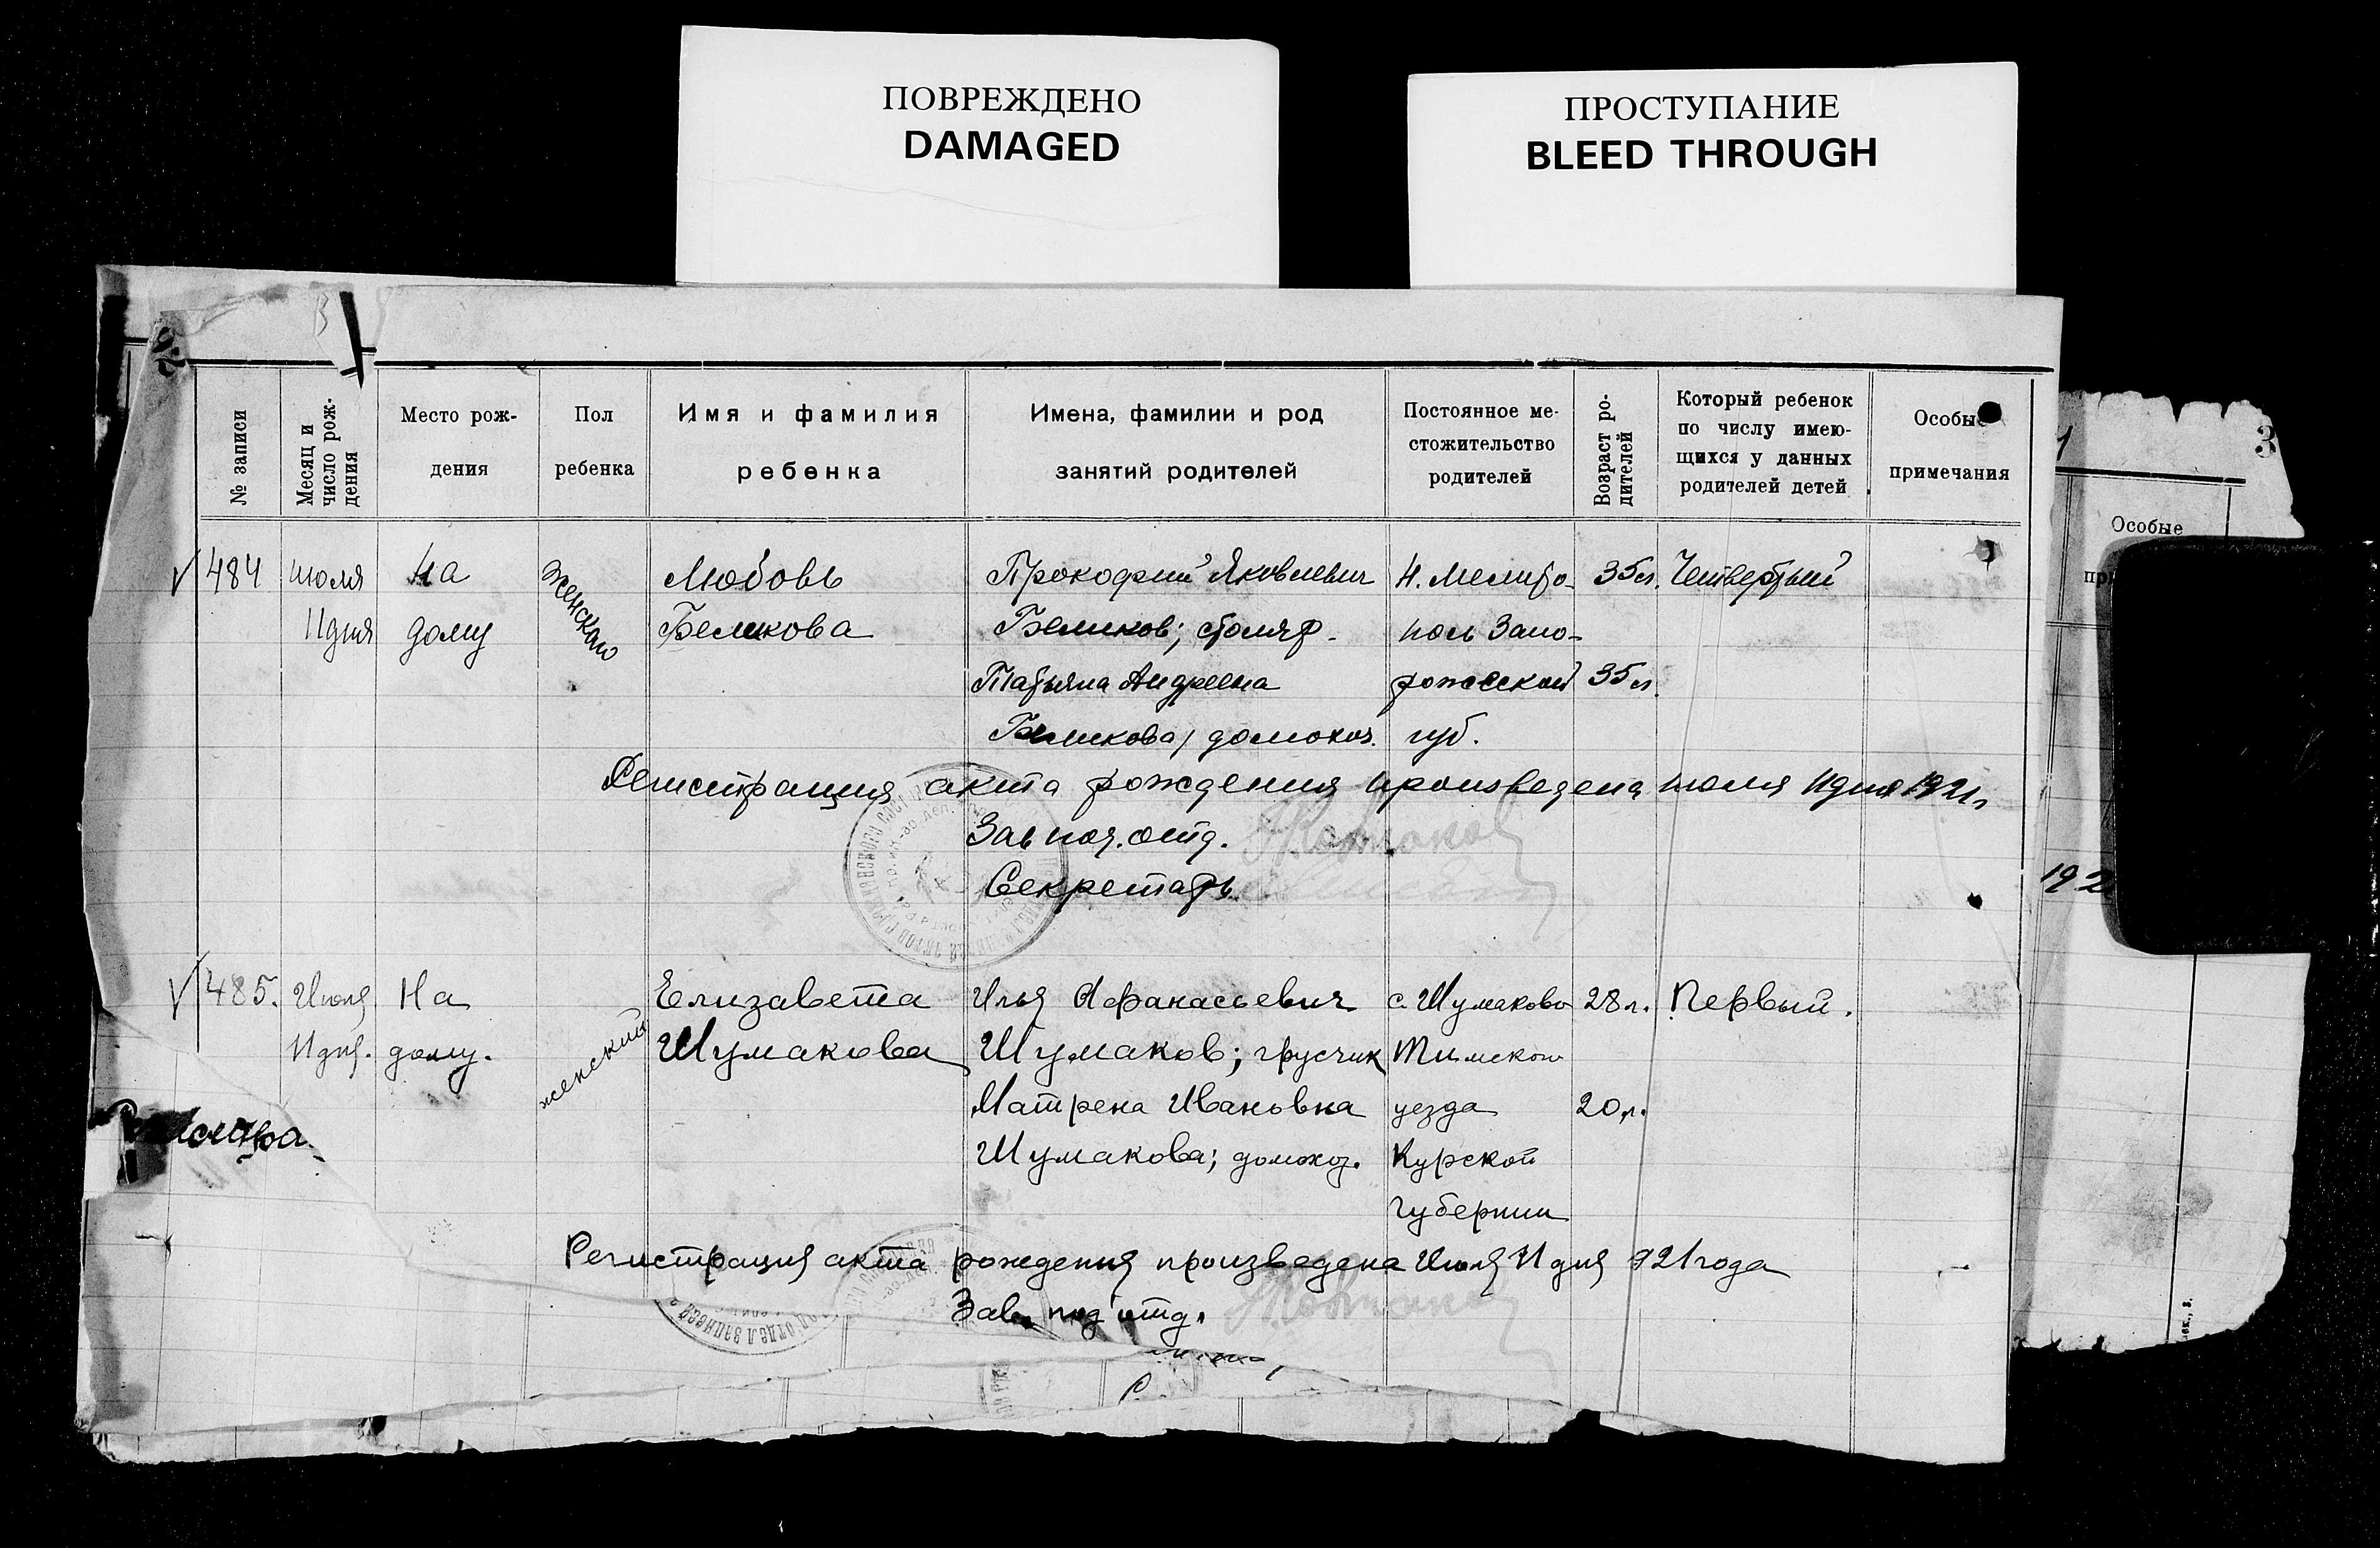 ПОВРЕЖДЕНО
DAMAGED
ПРОСТУПАНИЕ
BLEED THROUGH
№ записи
Месяц и
число рож-
дения
Место рож-
дения
Пол
ребенка
Имя и фамилия
ребенка
Имена, фамилии и род
занятий родителей
Постоянное ме-
стожительство
родителей
Возраст ро-
дителей
Который ребенок
по числу имею-
щихся у данных
родителей детей
Особые
примечания
3
Особые
484 июля На женскаго Любовь Прокофий Яковлевич Н. Мелито- 35 л. Четвертый
11 дня дому Беликова Беликов; столяр. поль Запо-
Татьяна Андреевна рожской 35 л.
Беликова, домохоз. губ.
Регистрация акта рождения произведена июля 11 дня 1921 г.
Зав под. отд.
Секретарь
192
485. Июля На женский Елизавета Илья Афанасьевич с. Шумаково 28 л. Первый.
11 дня. дому. Шумакова Шумаков; грузчик Тимского
Матрена Ивановна уезда 20 л.
Шумакова; домохоз. Курской
губернии
Регистрация акта рождения произведена Июля 11 дня 921 года
Зав. под'отд.